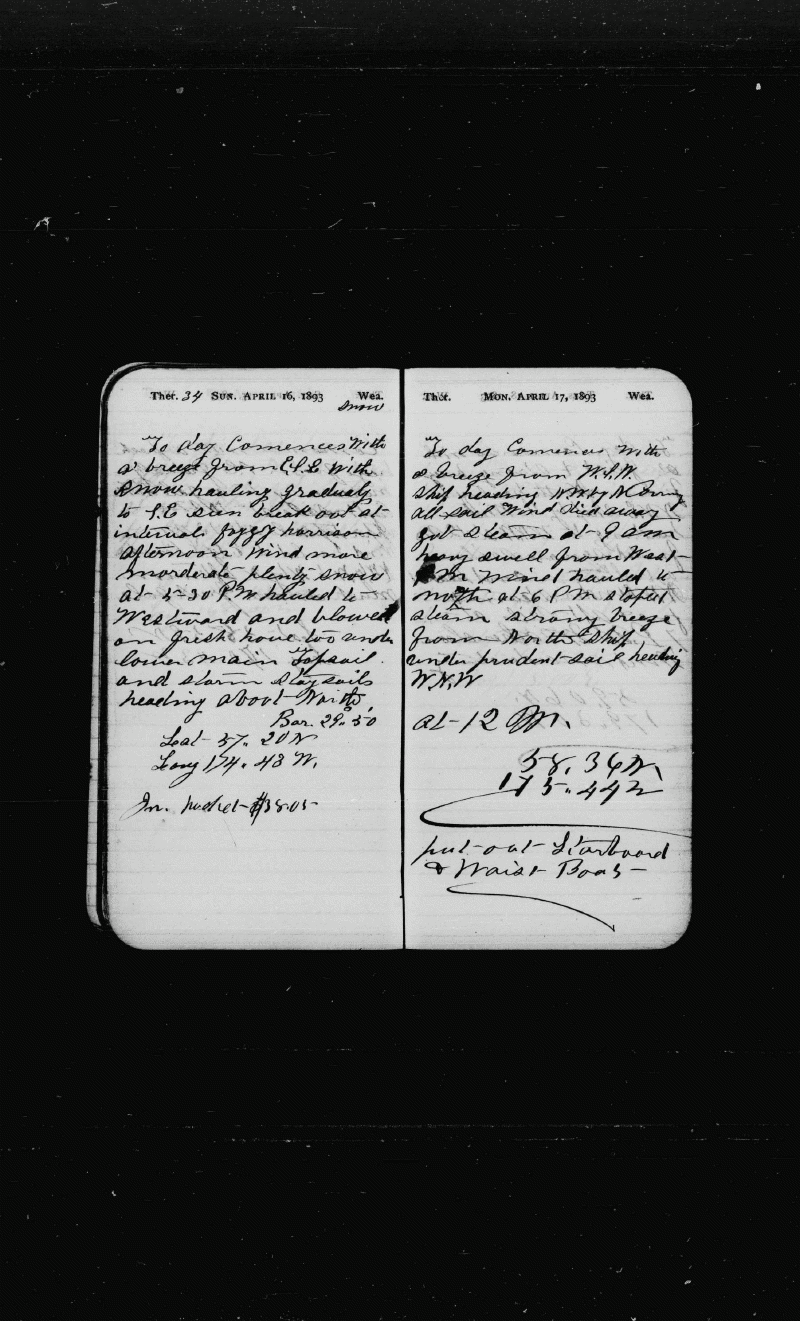 Ther. 34 SUN. APRIL 16, 1893 Wea.
Snow
To day Comences With
a breeze from E.S.E With
snow hauling gradualy
to S.E sun break out at
intervals foggy horrison
afternoon Wind more
morderate plenty snow
at 5-30 P.M hauled to
Westward and blowed
on fresh hove too under
lower main Topsail
and storm staysails
heading about North,
Bar. 29.50
Lat 57. 20 N
Long 174. 43 W.
In. pocket $38.05
Ther. MON. APRIL 17, 1893 Wea.
To day Comences With
a breeze from W.S.W.
ship heading N.W by N Carring
all sail Wind died away
got steam at 9 am
heavy swell from West
P.M Wind hauled to
north at 6 P M stoped
steam strong breeze
from North ship
under prudent sail heading
W.N.W
at 12 M.
58. 36 N.
175. 44
put out Starboard
& Waist Boat